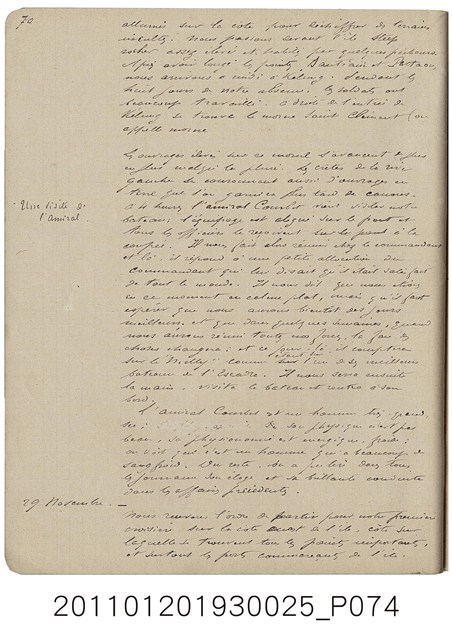 70
allumés sur la côte pour défricher des terrains
incultes. Nous passons devant l'île Steep
rocher assez élevé et habité par quelques pêcheurs.
Après avoir longé les pointes
nous arrivons à midi à Kelung. Pendant les
huit jours de notre absence, les soldats ont
beaucoup travaillé. À droite de l'entrée de
Kelung se trouve le morne Saint Clément
morne
Les ouvrages élevés sur ce morne s'avancent de plus
en plus malgré la pluie. Les crêtes de la rive
gauche se couronnent aussi d'ouvrages en
terre que l'on garnira plus tard de canons.
Une visite de
l'amiral
À 4 heures l'amiral Courbet vient visiter notre
bateau. L'équipage est sur le pont et
tous les officiers le reçoivent sur le pont à la
coupée. Il nous fait tous réunir chez le commandant
et là il répond à une petite allocution du
commandant qui lui disait qu'il était satisfait
de tout le monde. Il nous dit que nous étions
en ce moment en calme plat, mais qu'il faut
espérer que nous aurons bientôt des jours
meilleurs, et que dans quelques semaines, quand
nous aurons réuni toutes nos forces, la face des
choses changera; et ce jour là il comptera
sur le Nielly comme étant l'un des meilleurs
bateaux de l'Escadre. Il nous serra ensuite
la main, visita le bateau et rentra à son
bord.
L'amiral Courbet est un homme très grand
de son physique n'est pas
beau, sa physionomie est énergique, froide;
on voit que c'est un homme qui a beaucoup de
sangfroid. Du reste, on a pu lire dans tous
les journaux son éloge et sa brillante conduite
dans les affaires précédentes.
29 Novembre. —
Nous recevons l'ordre de partir pour notre première
croisière sur la côte ouest de l'île, côte sur
laquelle se trouvent tous les points importants,
et surtout les ports commerçants de l'île.
201101201930025_P074